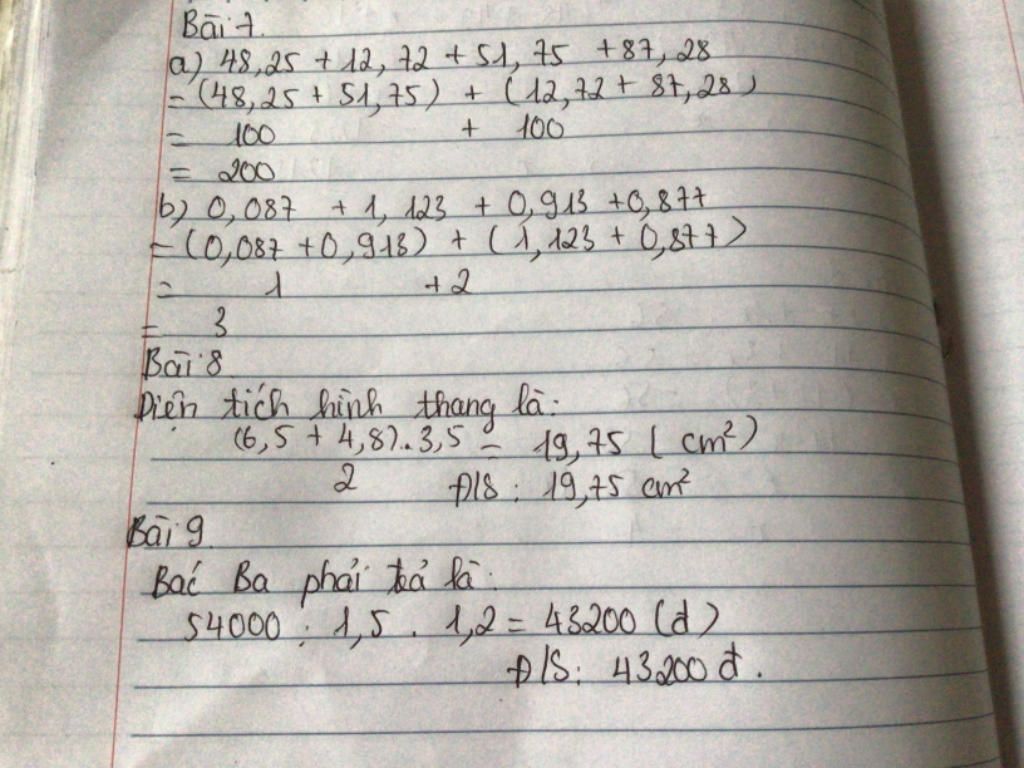 Bài 7.
a) 48,25 + 12,72 + 51,75 + 87,28
= (48,25 + 51,75) + (12,72 + 87,28)
= 100 + 100
= 200
b) 0,087 + 1,123 + 0,913 + 0,877
= (0,087 + 0,913) + (1,123 + 0,877)
= 1 + 2
= 3
Bài 8
Diện tích hình thang là:
(6,5 + 4,8).3,5 = 19,75 (cm²)
2 Đ/S: 19,75 cm²
Bài 9.
Bác Ba phải trả là:
54000 : 1,5 . 1,2 = 43200 (đ)
Đ/S: 43200 đ.